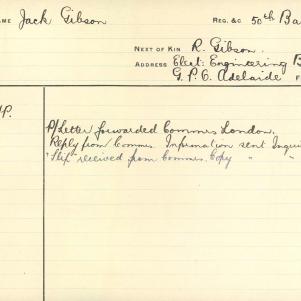 NAME Jack Gibson REG. &C 50th Ba
NEXT OF KIN R. Gibson.
ADDRESS Elect: Engineering B
G.P.O. Adelaide
P/Letter forwarded Commrs London.
Reply from Commrs. Information sent Inqui
"Slip" received from Commrs. Copy " "